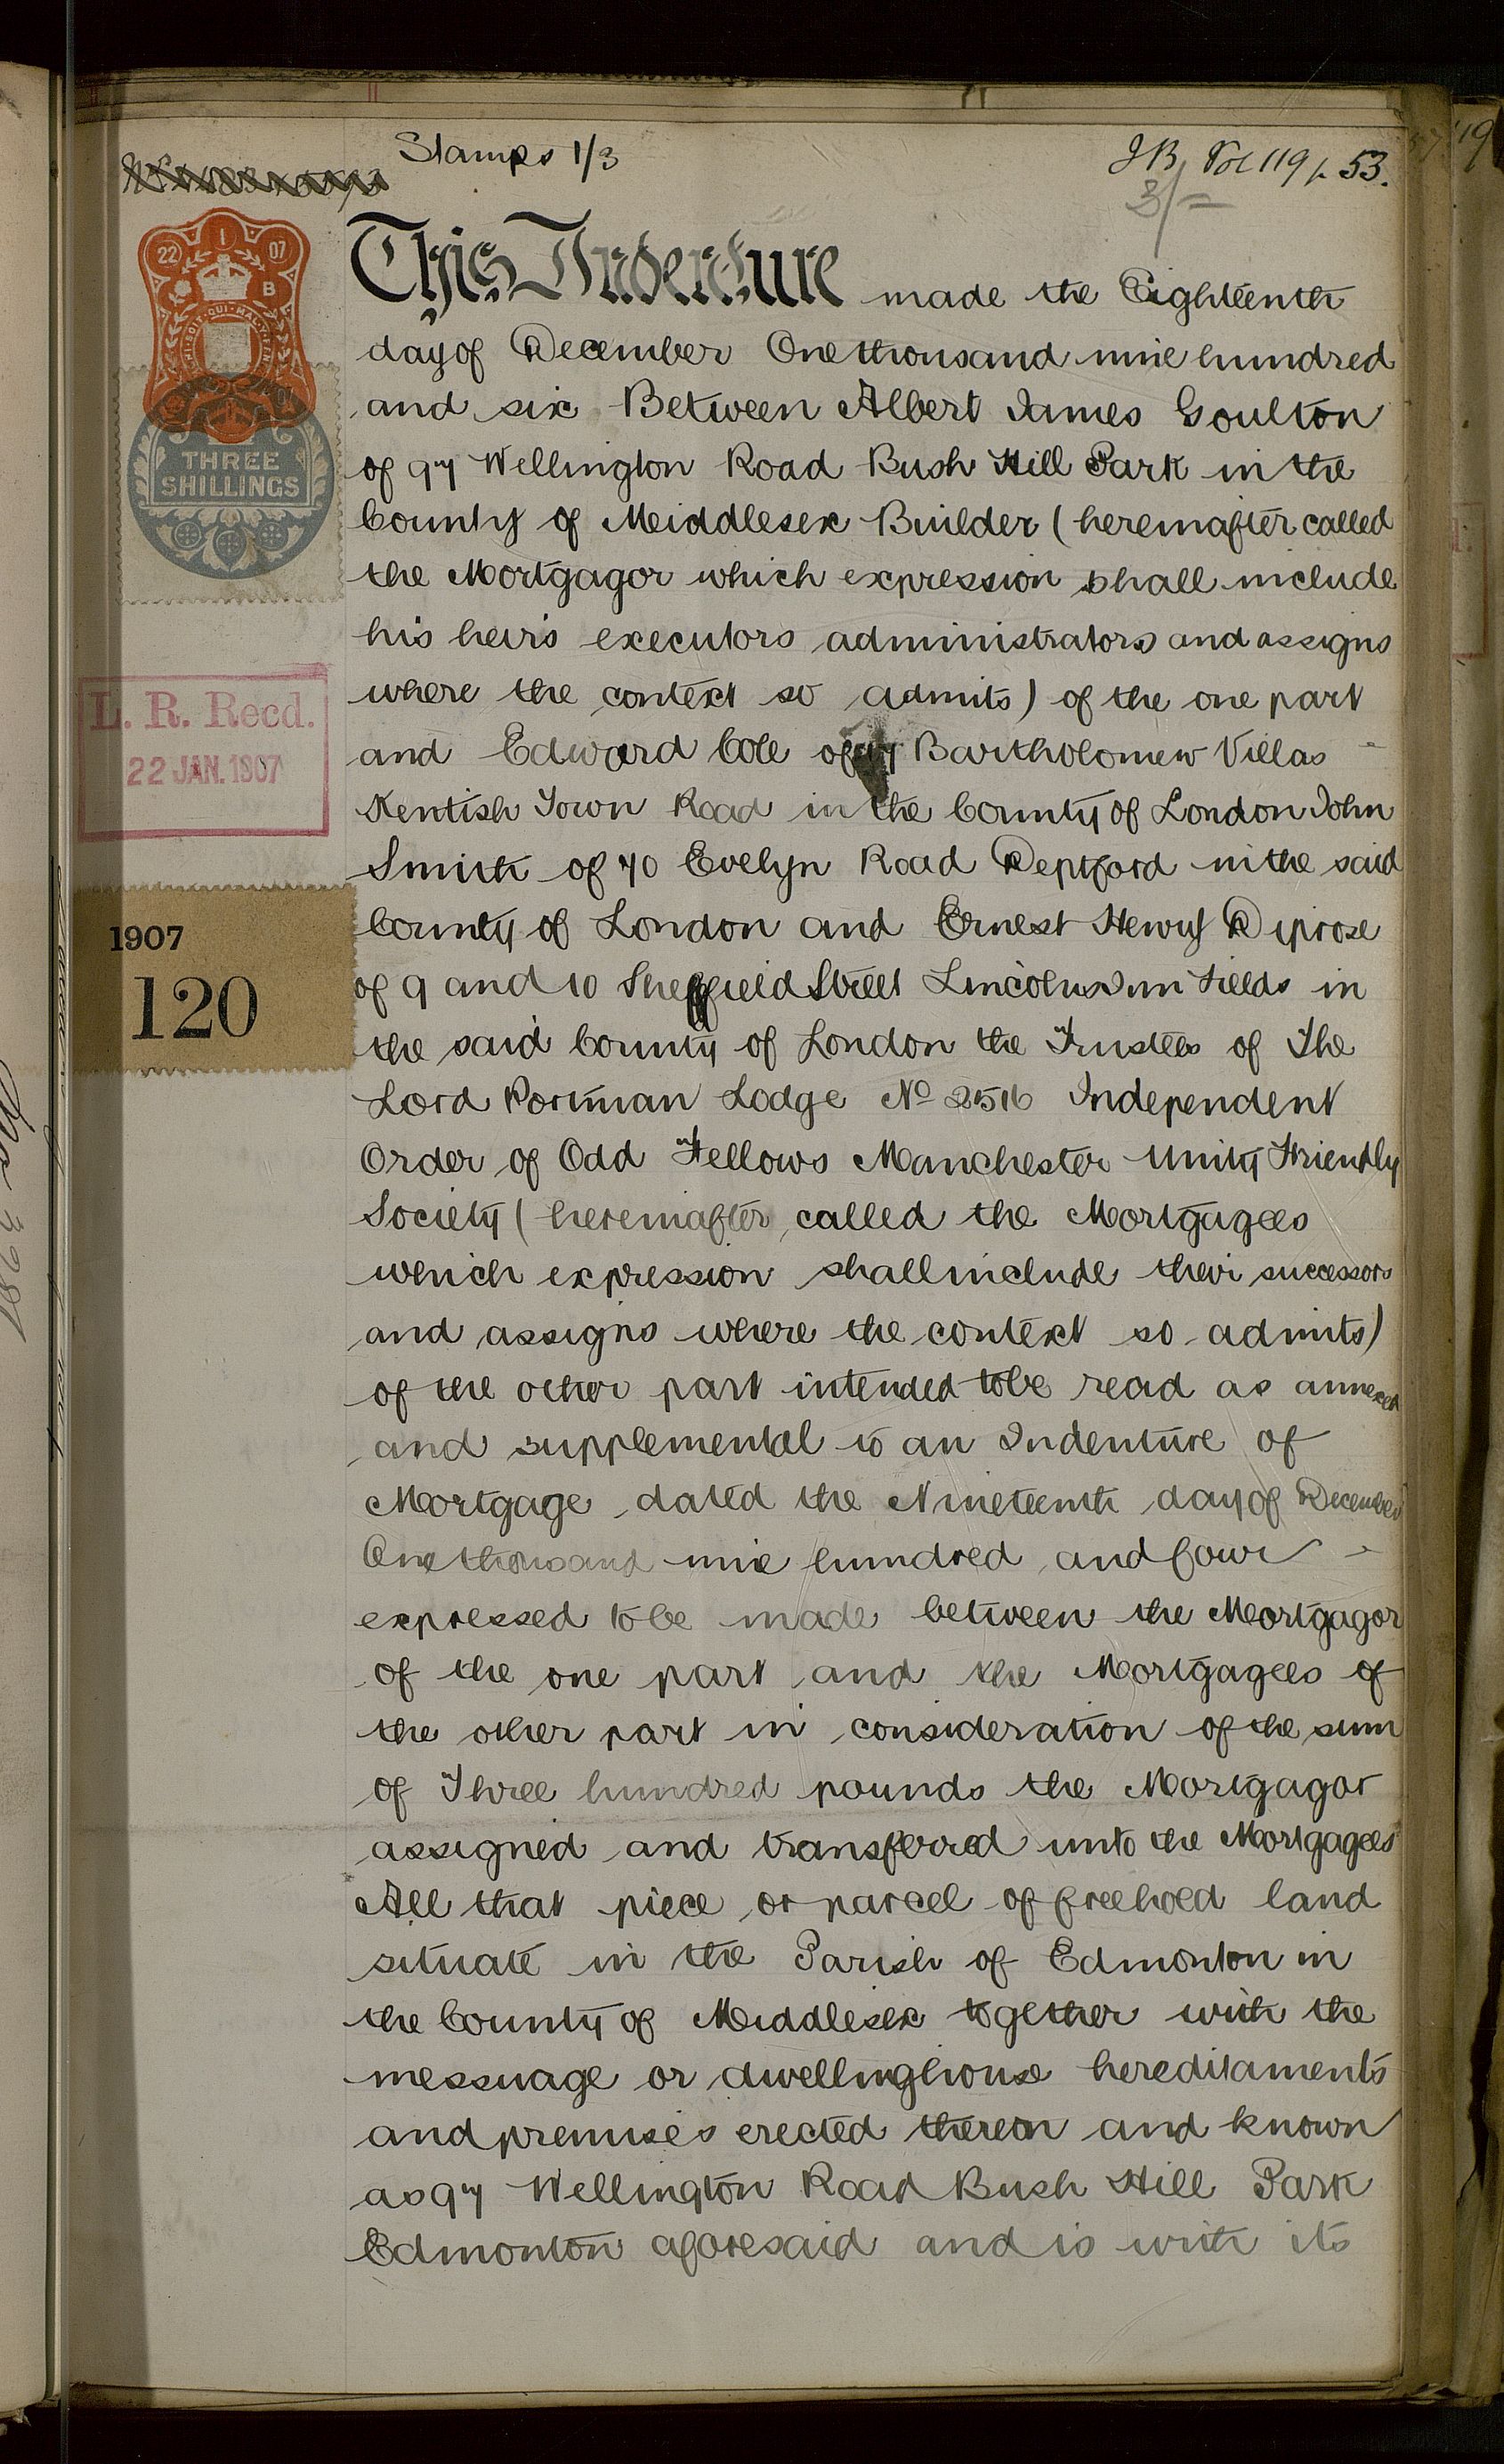 Stamps 1/3
J B, Vol 119 p. 53.
3/=
22 I 07
B
THREE
SHILLINGS
L. R. Recd.
22 JAN. 1907
1907
120
This Indenture made the Eighteenth
day of December One thousand nine hundred
and six Between Albert James Goulton
of 97 Wellington Road Bush Hill Park in the
County of Middlesex Builder (hereinafter called
the Mortgagor which expression shall include
his heirs executors administrators and assigns
where the context so admits) of the one part
and Edward Cole of Bartholomew Villas
Kentish Town Road in the County of London John
Smith of 70 Evelyn Road Deptford in the said
County of London and Ernest Henry Diprose
of 9 and 10 Sheffield Street Lincolns Inn Fields in
the said County of London the Trustees of The
Lord Portman Lodge No 2516 Independent
Order of Odd Fellows Manchester Unity Friendly
Society (hereinafter called the Mortgagees
which expression shall include their successors
and assigns where the context so admits)
of the other part intended to be read as annexed
and supplemental to an Indenture of
Mortgage dated the Nineteenth day of December
One thousand nine hundred and four
expressed to be made between the Mortgagor
of the one part and the Mortgagees of
the other part in consideration of the sum
of Three hundred pounds the Mortgagor
assigned and transferred unto the Mortgagees
All that piece or parcel of freehold land
situate in the Parish of Edmonton in
the County of Middlesex together with the
messuage or dwellinghouse hereditaments
and premises erected thereon and known
as 97 Wellington Road Bush Hill Park
Edmonton aforesaid and is with its